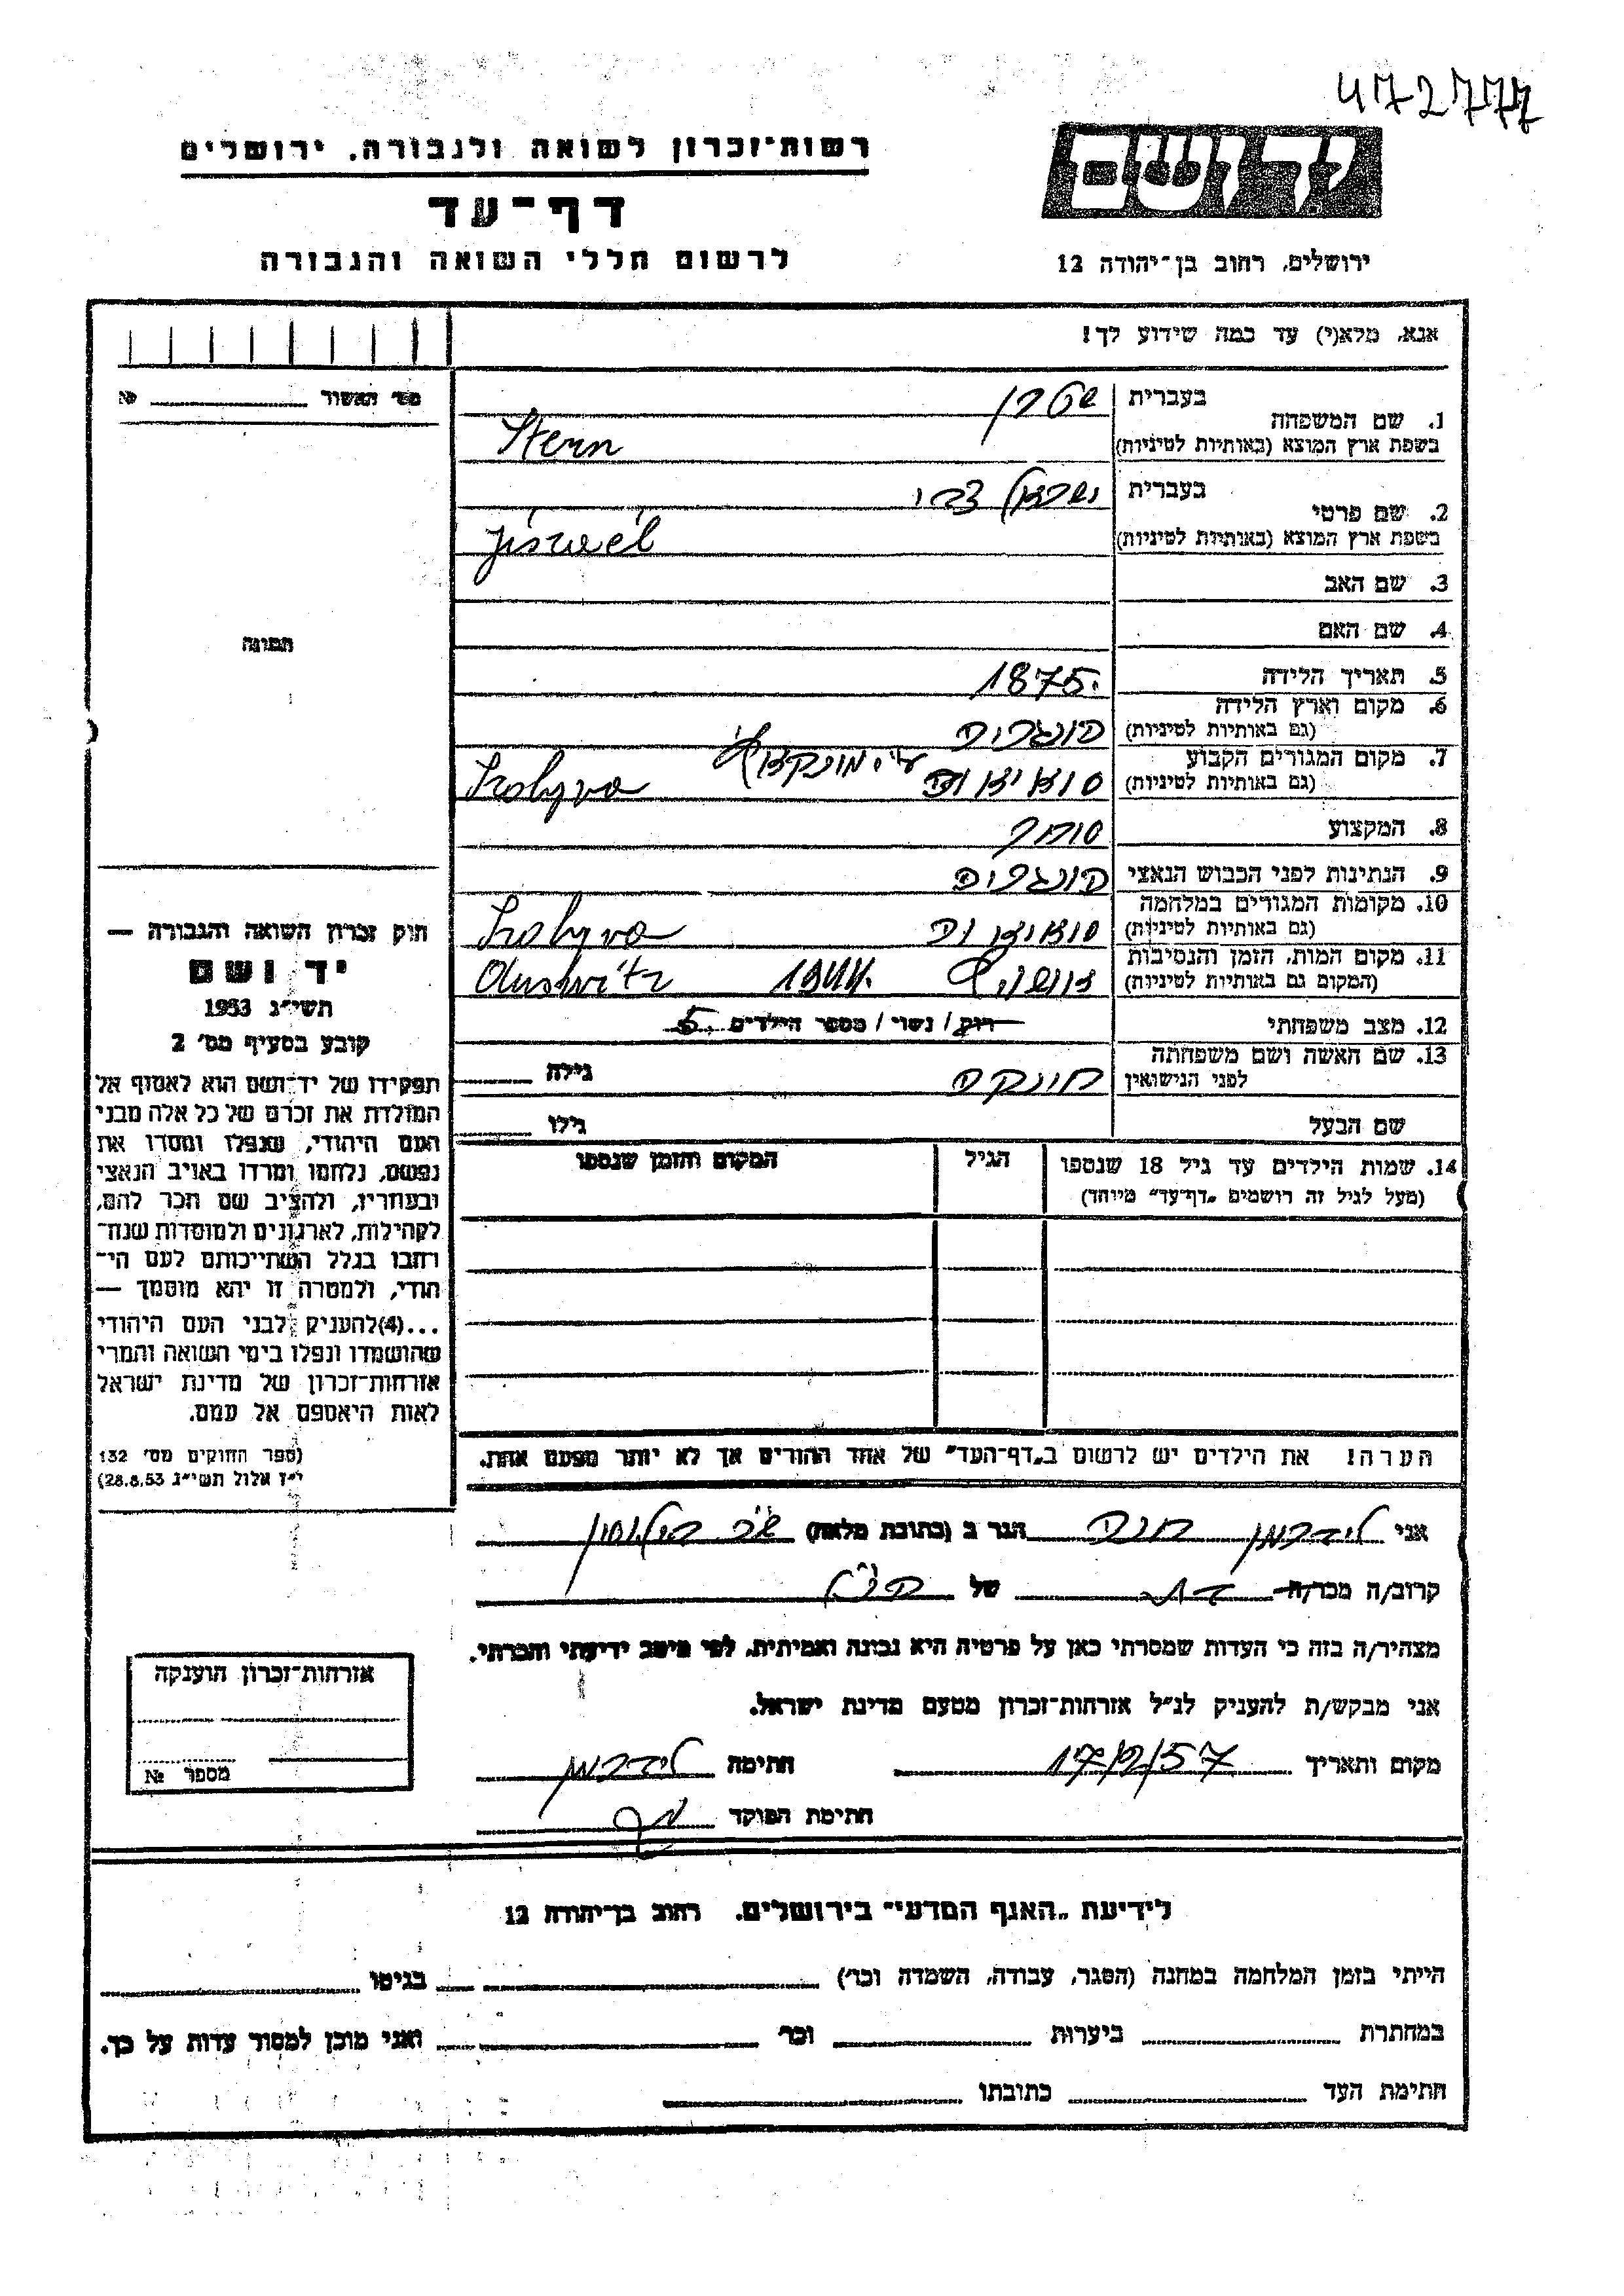 472777
רשות־זכרון לשואה ולגבורה. ירושלים
דף־עד
לרשום חללי השואה והגבורה
יד ושם
ירושלים, רחוב בן־יהודה 12
אנא, מלא(י) עד כמה שידוע לך!
מס׳ האשור №
1. שם המשפחה
בעברית שטרן
בשפת ארץ המוצא (באותיות לטיניות) Stern
2. שם פרטי
בעברית ישראל צבי
בשפת ארץ המוצא (באותיות לטיניות) Jisraél
3. שם האב
4. שם האם
תמונה
5. תאריך הלידה 1875.
6. מקום וארץ הלידה
(גם באותיות לטיניות) הונגריה
7. מקום המגורים הקבוע
ע״י מונקאץ׳
(גם באותיות לטיניות) Szolyva
8. המקצוע סוחר
9. הנתינות לפני הכבוש הנאצי הונגריה
10. מקומות המגורים במלחמה
(גם באותיות לטיניות) Szolyva
11. מקום המות, הזמן והנסיבות
(המקום גם באותיות לטיניות) אושויץ 1944. Auswitz
12. מצב משפחתי רווק / נשוי / מספר הילדים 5.
13. שם האשה ושם משפחתה
לפני הנישואין גילה
שם הבעל גילו
14. שמות הילדים עד גיל 18 שנספו
(מעל לגיל זה רושמים „דף־עד״ מיוחד)
הגיל
המקום והזמן שנספו
הערה! את הילדים יש לרשום ב„דף־העד״ של אחד ההורים אך לא יותר מפעם אחת.
חוק זכרון השואה והגבורה —
יד ושם
תשי״ג 1953
קובע בסעיף מס׳ 2
תפקידו של יד־ושם הוא לאסוף אל
המולדת את זכרם של כל אלה מבני
העם היהודי, שנפלו ומסרו את
נפשם, נלחמו ומרדו באויב הנאצי
ובעוזריו, ולהציב שם וזכר להם,
לקהילות, לארגונים ולמוסדות שנח־
רבו בגלל השתייכותם לעם הי־
הודי, ולמטרה זו יהא מוסמך —
...(4)להעניק לבני העם היהודי
שהושמדו ונפלו בימי השואה והמרי
אזרחות־זכרון של מדינת ישראל
לאות היאספם אל עמם.
(ספר החוקים מס׳ 132
י״ז אלול תשי״ג 28.8.53)
אני לידרמן חנה הגר ב (כתובת מלאה)
קרוב/ה מכר/ה בת של הנ״ל
מצהיר/ה בזה כי העדות שמסרתי כאן על פרטיה היא נכונה ואמיתית, לפי מיטב ידיעתי והכרתי.
אני מבקש/ת להעניק לנ״ל אזרחות־זכרון מטעם מדינת ישראל.
מקום ותאריך חתימה לידרמן
חתימת הפוקד
אזרחות־זכרון הוענקה
מספר №
לידיעת „האגף המדעי״ בירושלים. רחוב בן־יהודה 12
הייתי בזמן המלחמה במחנה (הסגר, עבודה, השמדה וכו׳) בגיטו
במחתרת ביערות וכו׳ ואני מוכן למסור עדות על כך.
חתימת העד כתובתו